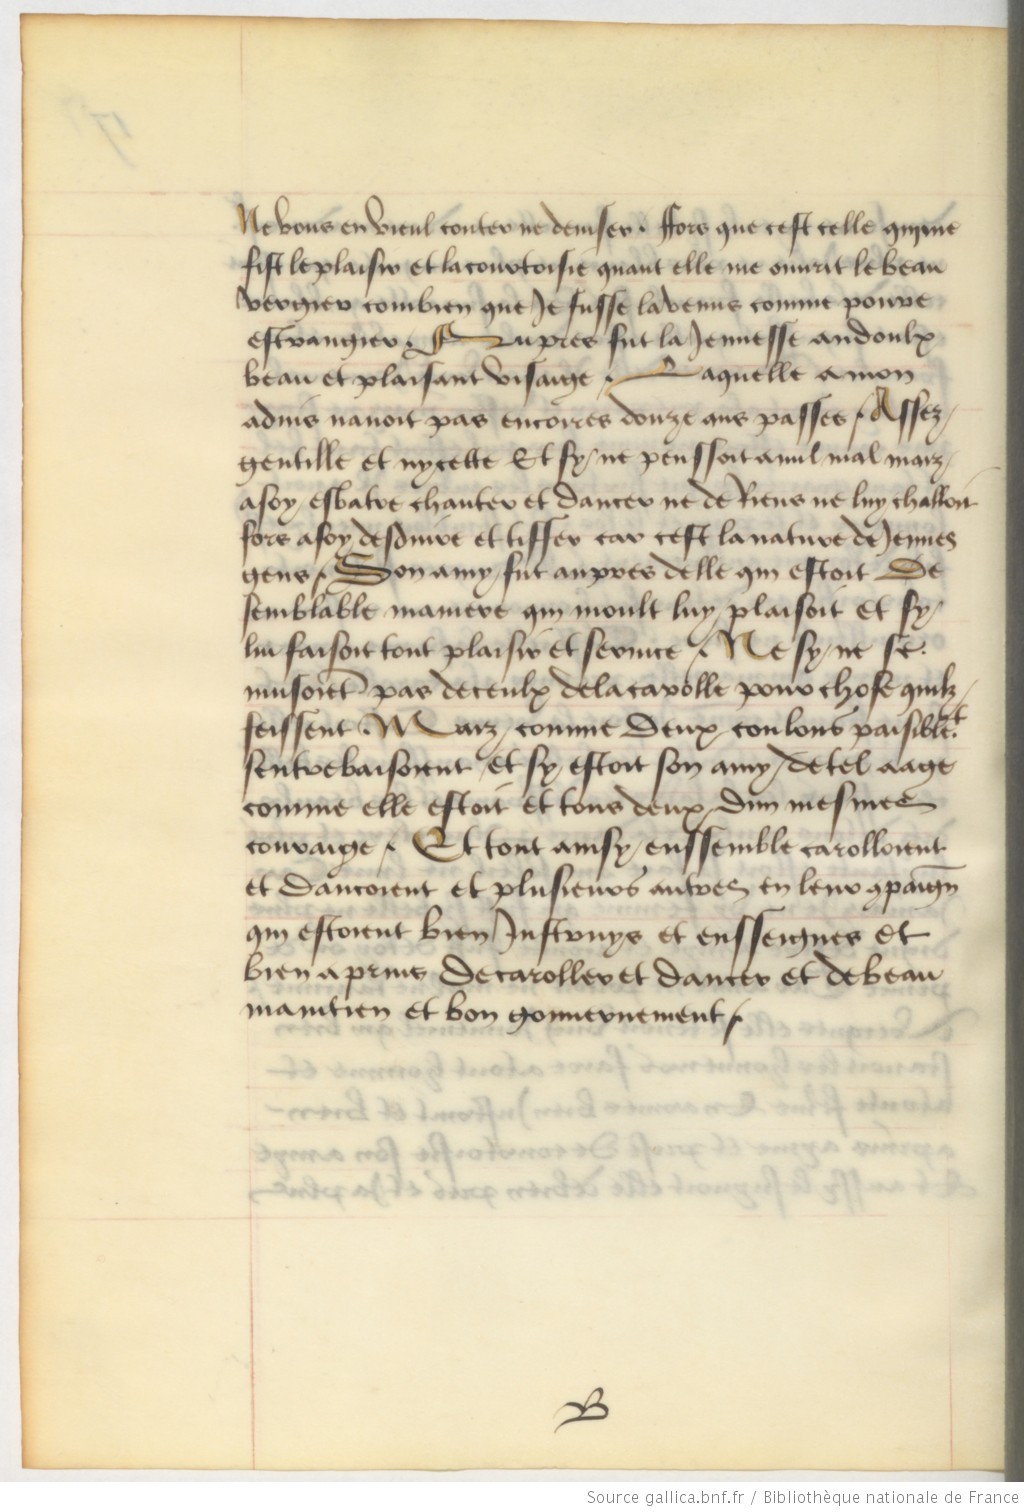 Ne vous en vieul conter ne deviser. Fors que cest celle qui me
fist le plaisir et la courtoisie quant elle me ouvrit le beau
vergier combien que Je fusse la venus comme povre
estrangier. Aupres fut la Jennesse au doulx
beau et plaisant visaige. Laquelle a mon
advis navoit pas encorres douze ans passes / Assez
gentille et nycette Et sy ne penssoit a nul mal maiz
a soy esbatre chanter et dancer ne de Riens ne luy challoit
fors a soy desduire et tiffer car cest la nature de Jennes
gens / Son amy fut aupres delle qui estoit De
semblable maniere qui moult luy plaisoit et sy
lui faisoit tout plaisir et service / Ne sy ne se
musoiet pas de ceulx de la carolle pour chose quilz
feissent. Maiz comme deux coulons paisiblet
sentrebaisoient et sy estoit son amy de tel aage
comme elle estoit et tous deux dun mesmes
couraige / Et tout ainsy enssemble carolloient
et dancoient et plusieurs autres en leur 9paign
qui estoient bien Instruys et ensseignes et
bien aprins De caroller et dancer et de beau
maintien et bon gouvernement /
B
Source gallica.bnf.fr / Bibliothèque nationale de France